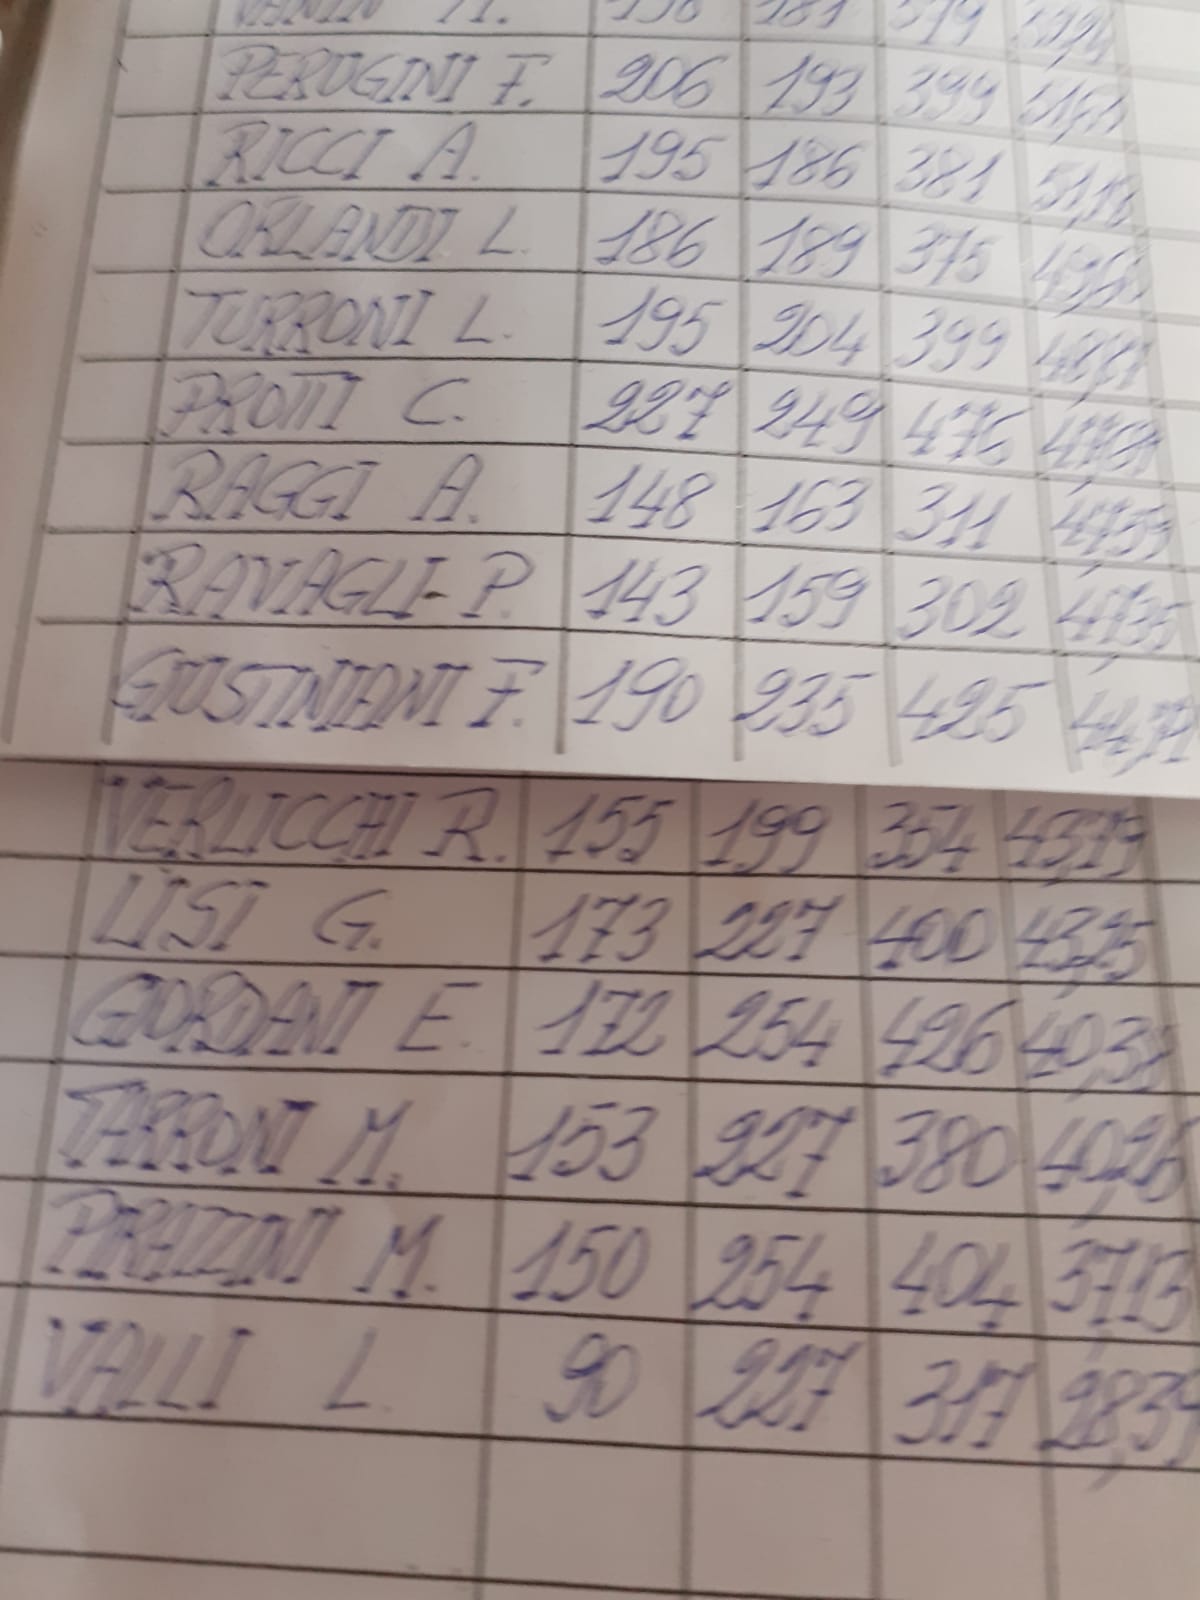 VANIN M. 198 181 379 52,24
PERUGINI F. 206 193 399 51,63
RICCI A. 195 186 381 51,18
ORLANDI L. 186 189 375 49,60
TURRONI L. 195 204 399 48,87
PROTTI C. 227 249 476 47,69
RAGGI A. 148 163 311 47,59
RAVAGLI P. 143 159 302 47,35
GIUSTINIANI F. 190 235 425 44,71
VERLICCHI R. 155 199 354 43,79
LISI G. 173 227 400 43,25
GIORDANI E. 172 254 426 40,38
TARRONI M. 153 227 380 40,26
PIRAZZINI M. 150 254 404 37,13
VALLI L. 90 227 317 28,39